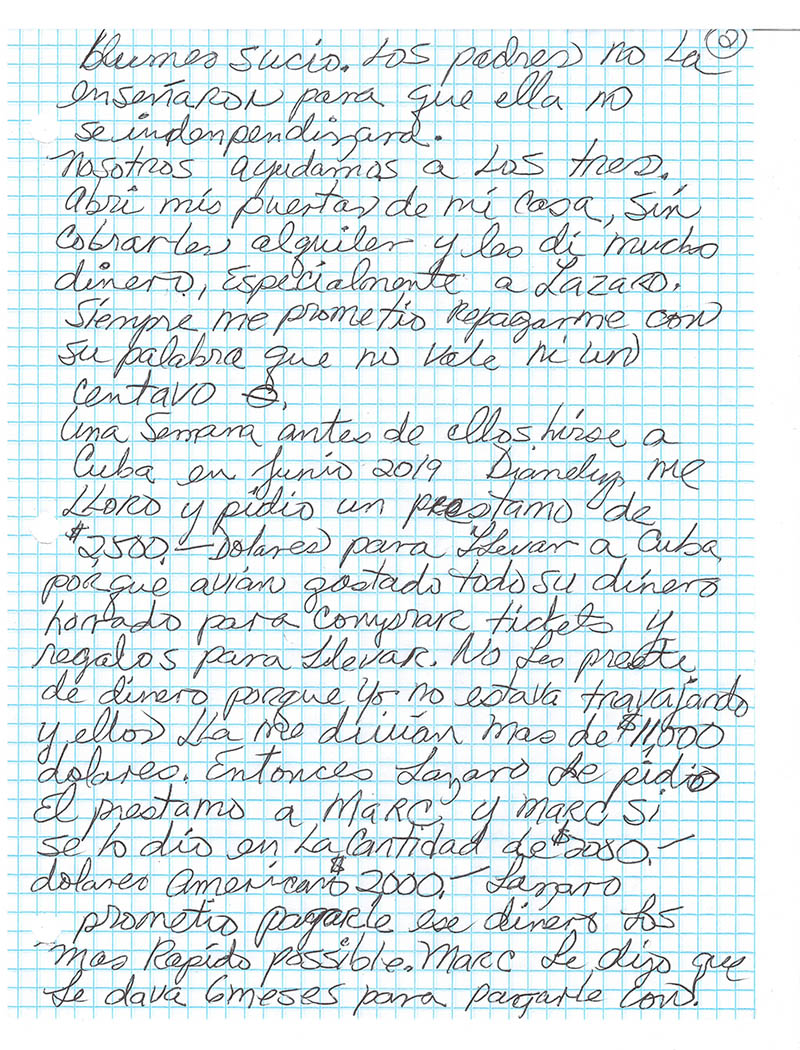 (2)
blumes sucio. Los padres no la
enseñaron para que ella no
se indenpendizara.
Nosotros ayudamos a los tres.
Abri mis puertas de mi casa, sin
cobrarles alquiler y les di mucho
dinero, especialmente a Lazaro.
Siempre me prometio repagarme con
su palabra que no vale ni un
centavo
Una semana antes de ellos hirse a
Cuba en Junio 2019 Dianelys me
lloro y pidio un prestamo de
$2,500.— Dolares para llevar a Cuba
porque avian gastado todo su dinero
horrado para comprar tickets y
regalos para llevar. No les preste
de dinero porque yo no estava travajando
y ellos lla me divian mas de $11,000
dolares. Entonces Lazaro le pidio
El prestamo a Marc, y Marc si
se lo dio en la cantidad de $2080.—
dolares American $2000.— Lazaro
prometio pagarle ese dinero los
mas rapido possible. Marc le dijo que
le dava 6 meses para pagarle con.